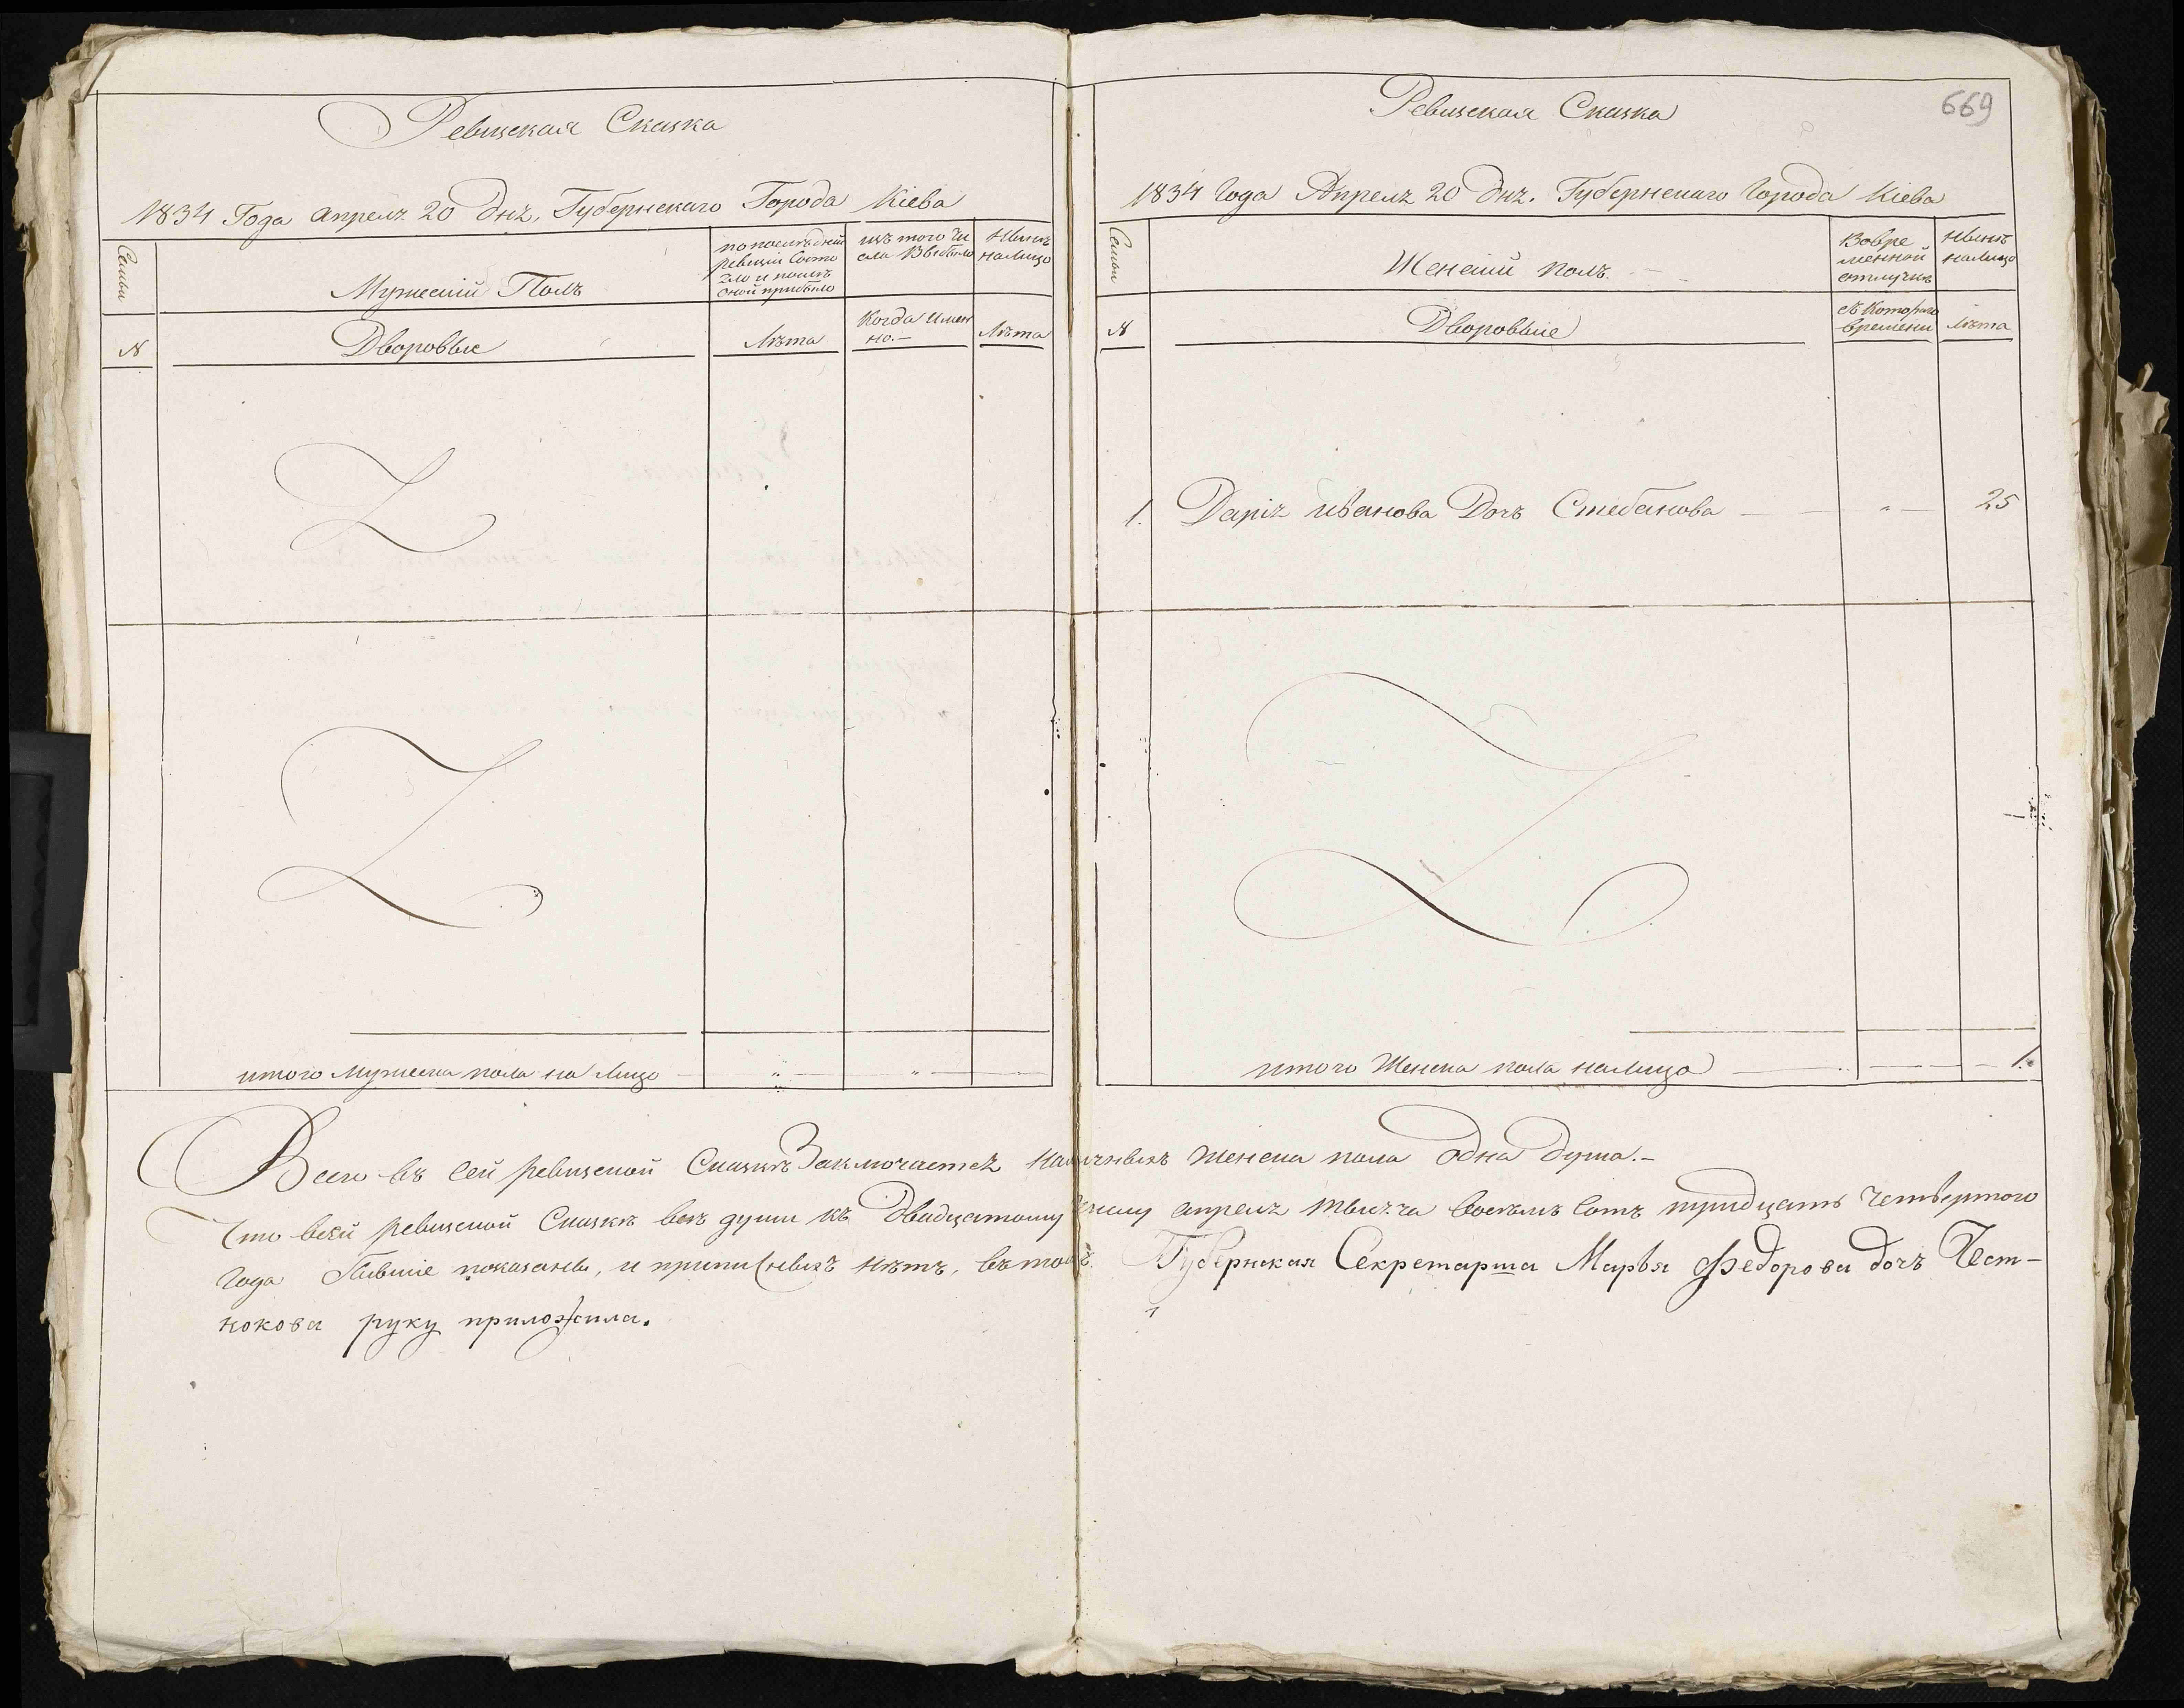 Ревизская Сказка
1834 Года апреля 20 дня, Губернскаго Города Кіева
Семьи
Мужескій Полъ
по послѣдней ревизіи состояло и послѣ оной прибыло
изъ того числа Выбыло
Нынѣ на лицо
№
Дворовые
Лѣта
Когда именно.—
Лѣта
итого Мужеска пола на Лицо
Ревизская Сказка
669
1834 Года Апреля 20 дня. Губернскаго Города Кіева
Семьи
Женскій полъ.
Вовременной отлучкѣ
Нынѣ налицо
№
Дворовыіе
съ Котораго времени
Лѣта
1. Дарія иванова Дочъ Стебанова 25
итого Женска пола налицо 1.
Всего въ сей ревизской Сказкѣ Заключается Наличныхъ Женска пола Одна душа.—
Что всей ревизской Сказкѣ всѣ души къ Двадцатому числу апреля тысяча восемъ сотъ тридцать четвертого
Года бывшіе показаны, и приписныхъ нѣтъ, втомъ. Губернская Секретарша Марья Федорова дочъ Чест-
нокова руку приложила.